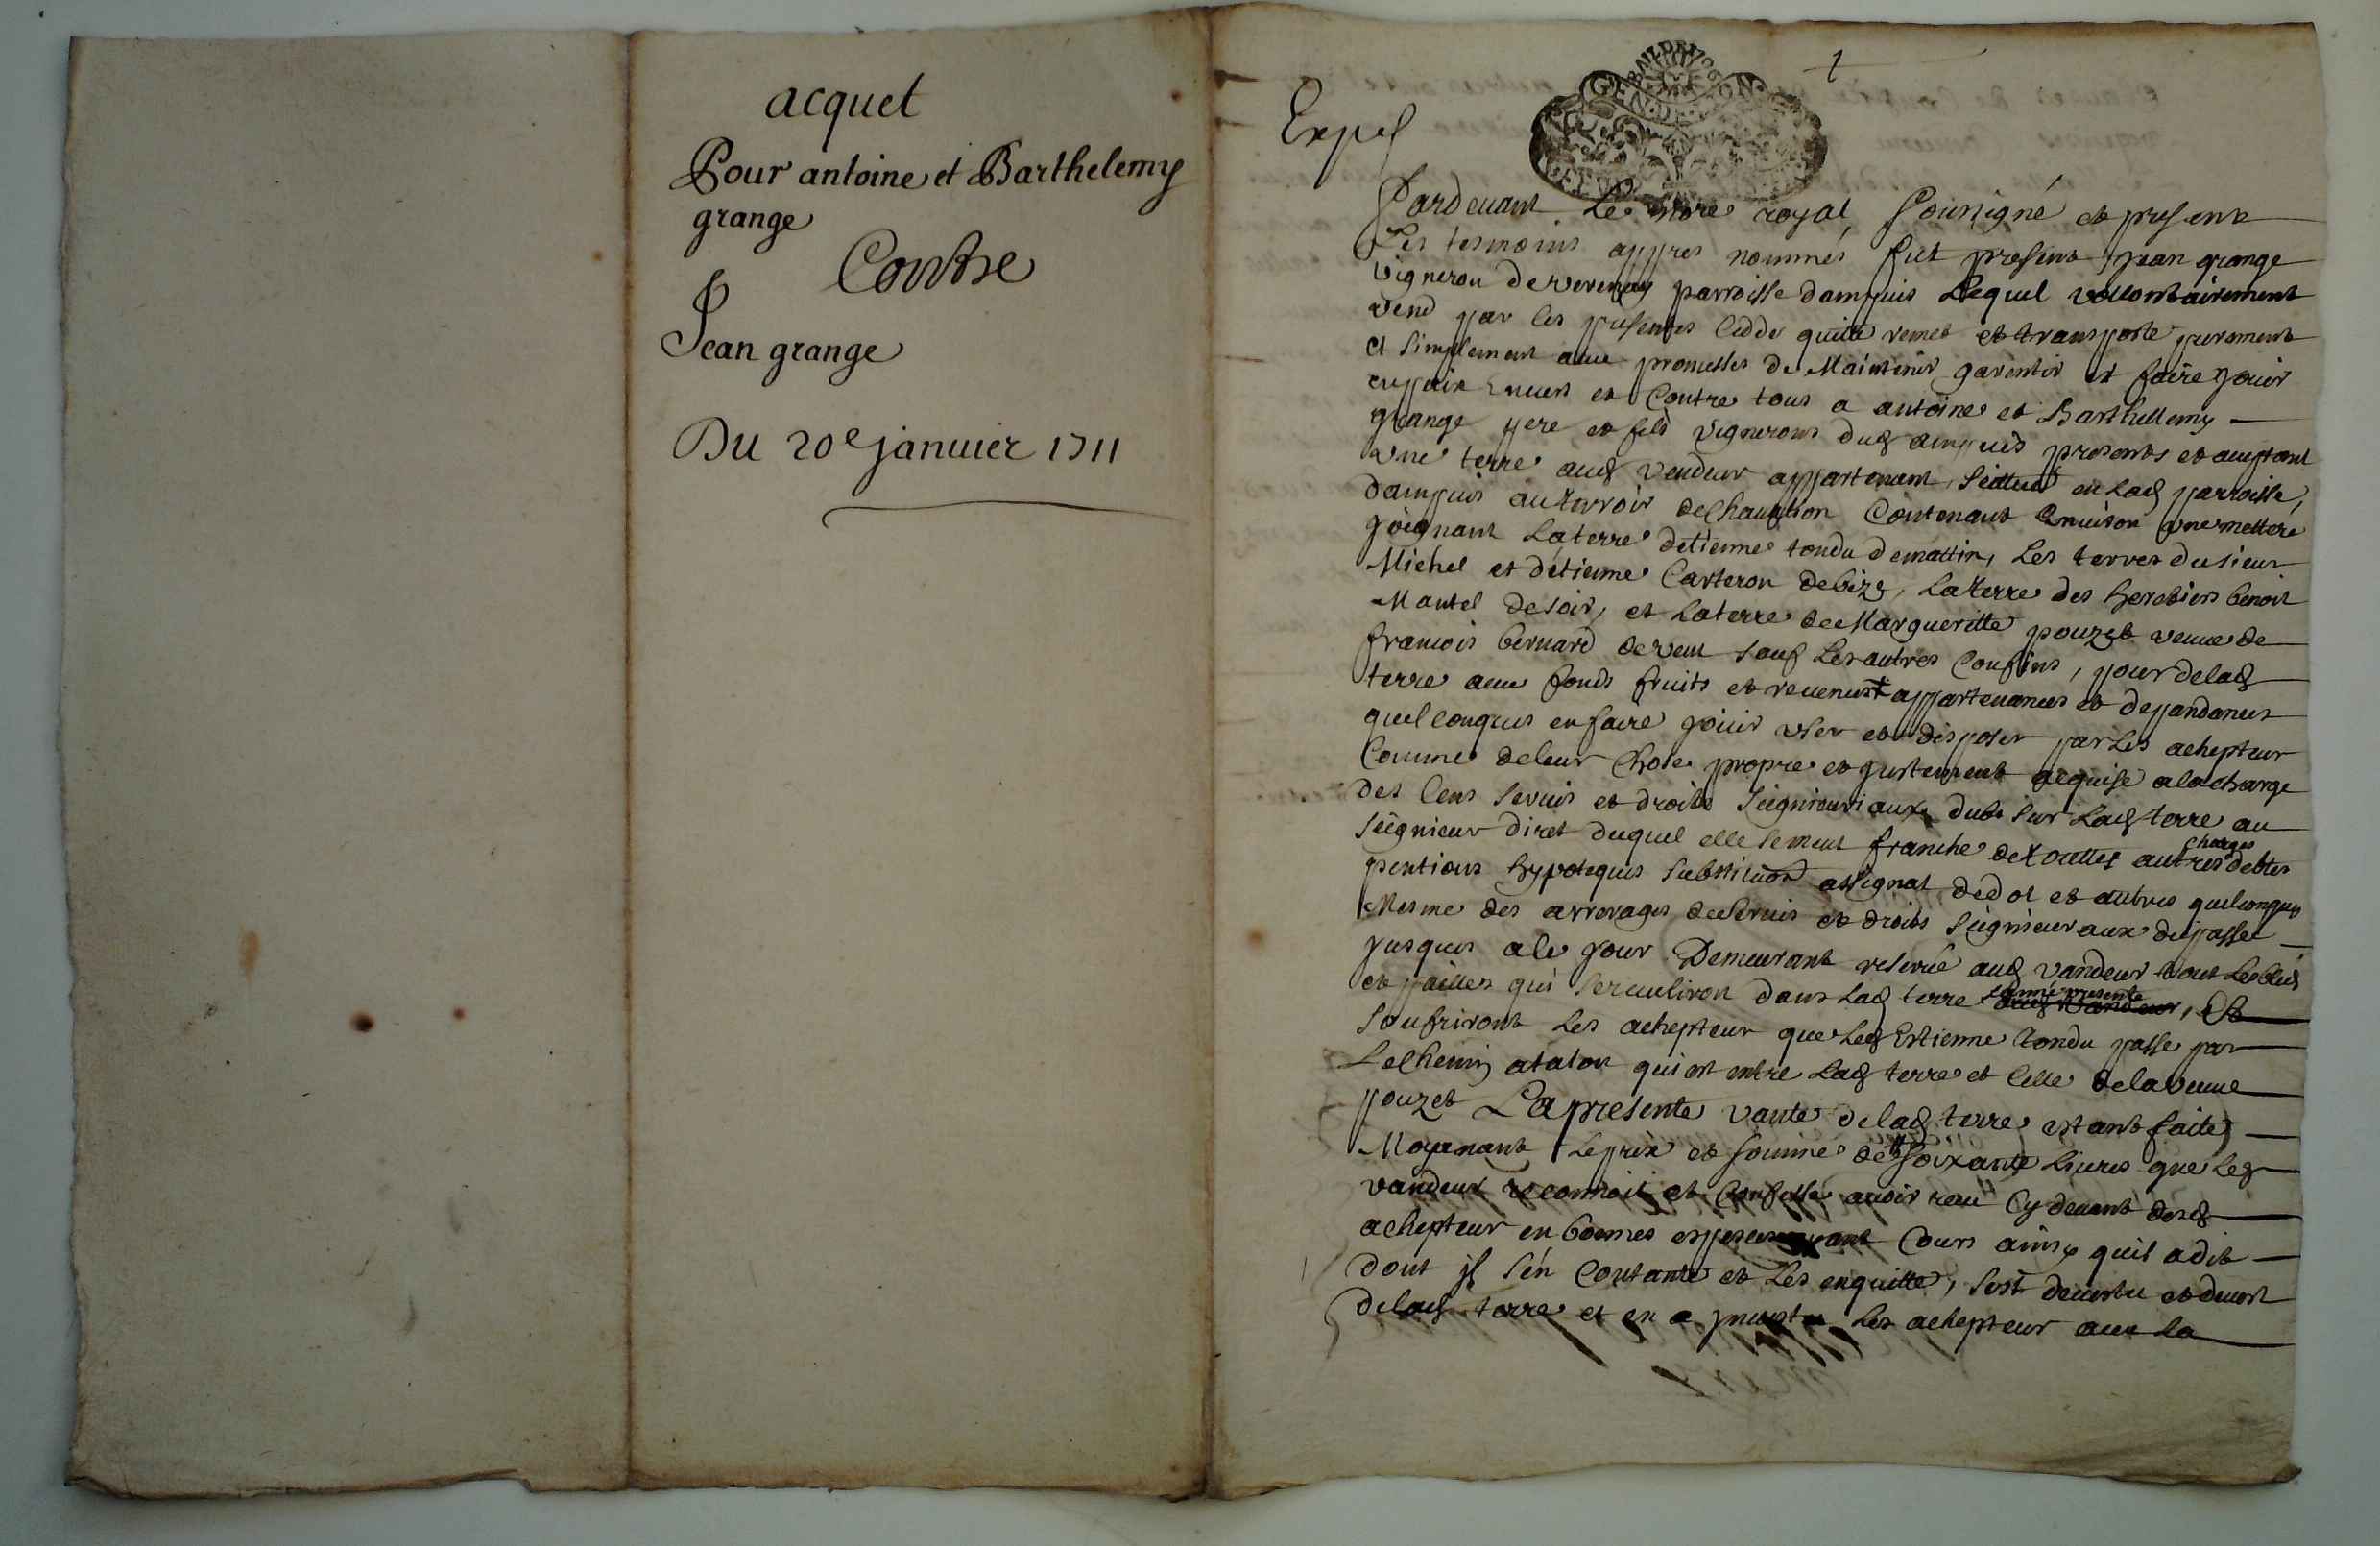 acquet
Pour antoine et Barthelemy
grange
Contre
Jean grange
Du 20e januier 1711
1
Expe
Pardeuant Le nore royal Soussigné et present
Les tesmoins appres nommés fut present jean grange
Vigneron de verenay parroisse dampuis Lequel vollontairement
vend par les presentes cedde quitte remet et transporte purement
et simplement auec promesses de Maintenir garentir et faire jouir
enpaix enuers et Contre tous a antoine et Barthellemy
grange pere et fils vignerons dud ampuis presents et aceptant
une terre aud vendeur appartenant, scittuée en lad parroisse,
dampuis au terroir de Contenant enuiron une metteré
joignant La terre detienne tondu demattin, Les terres du sieur
Michel et detienne Carteron debize, La terre des heretiers benoit
Mantel desoir, et La terre de Margueritte pouzet veuue de
francois bernard devent sauf Les autres Confins, pour de lad
terre auec fonds fruits et reuenus appartenances et dependances
quelconques en faire jouir user et disposer par Les achepteur
Comme de leur Chose propre et justement acquise a la charge
des Cens seruis et droits seigneuriaux dubs sur Lad terre au
seigneur diret duquel elle se meut franche de touttes autres charges debtes
pentions hypoteques substituon assignat de dot et autres quelconques
Mesme des arrerages de seruis et droits seigneuriaux du passé
jusques a ce jour Demeurant reserué aud vandeur tout Les bleds
et pailles qui se dans Lad terre Lanné presente, Et
soufriront Les achepteur que Led Estienne tondu passe par
Le Chemin atalon qui est entre Lad terre et Celle de la veuue
pouzet La presente vante de lad terre estant faite
Moyenant Le prix et somme de soixante Liures que Led
vandeur reconnoit et Confesse auoir receu Cy deuant desd
achepteur en bonnes especes ayant Cours ainsy quil a dit
dont jl s'en Contante et Les en quitte, sest deuestu et deuest
de lad terre et en a jnuestu Les achepteur auec La